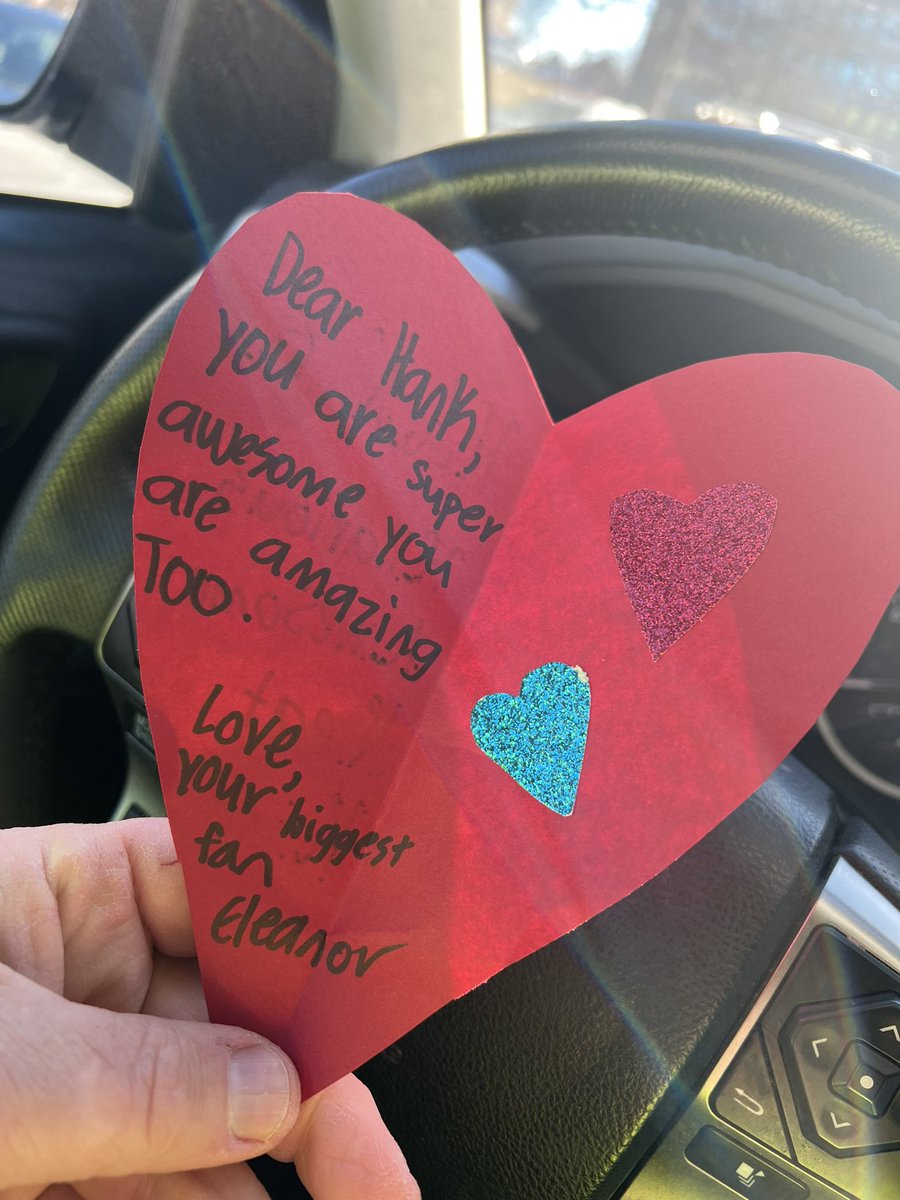 Dear Hank,
you are super
awesome you
are amazing
Too.
Love,
your biggest
fan
Eleanor